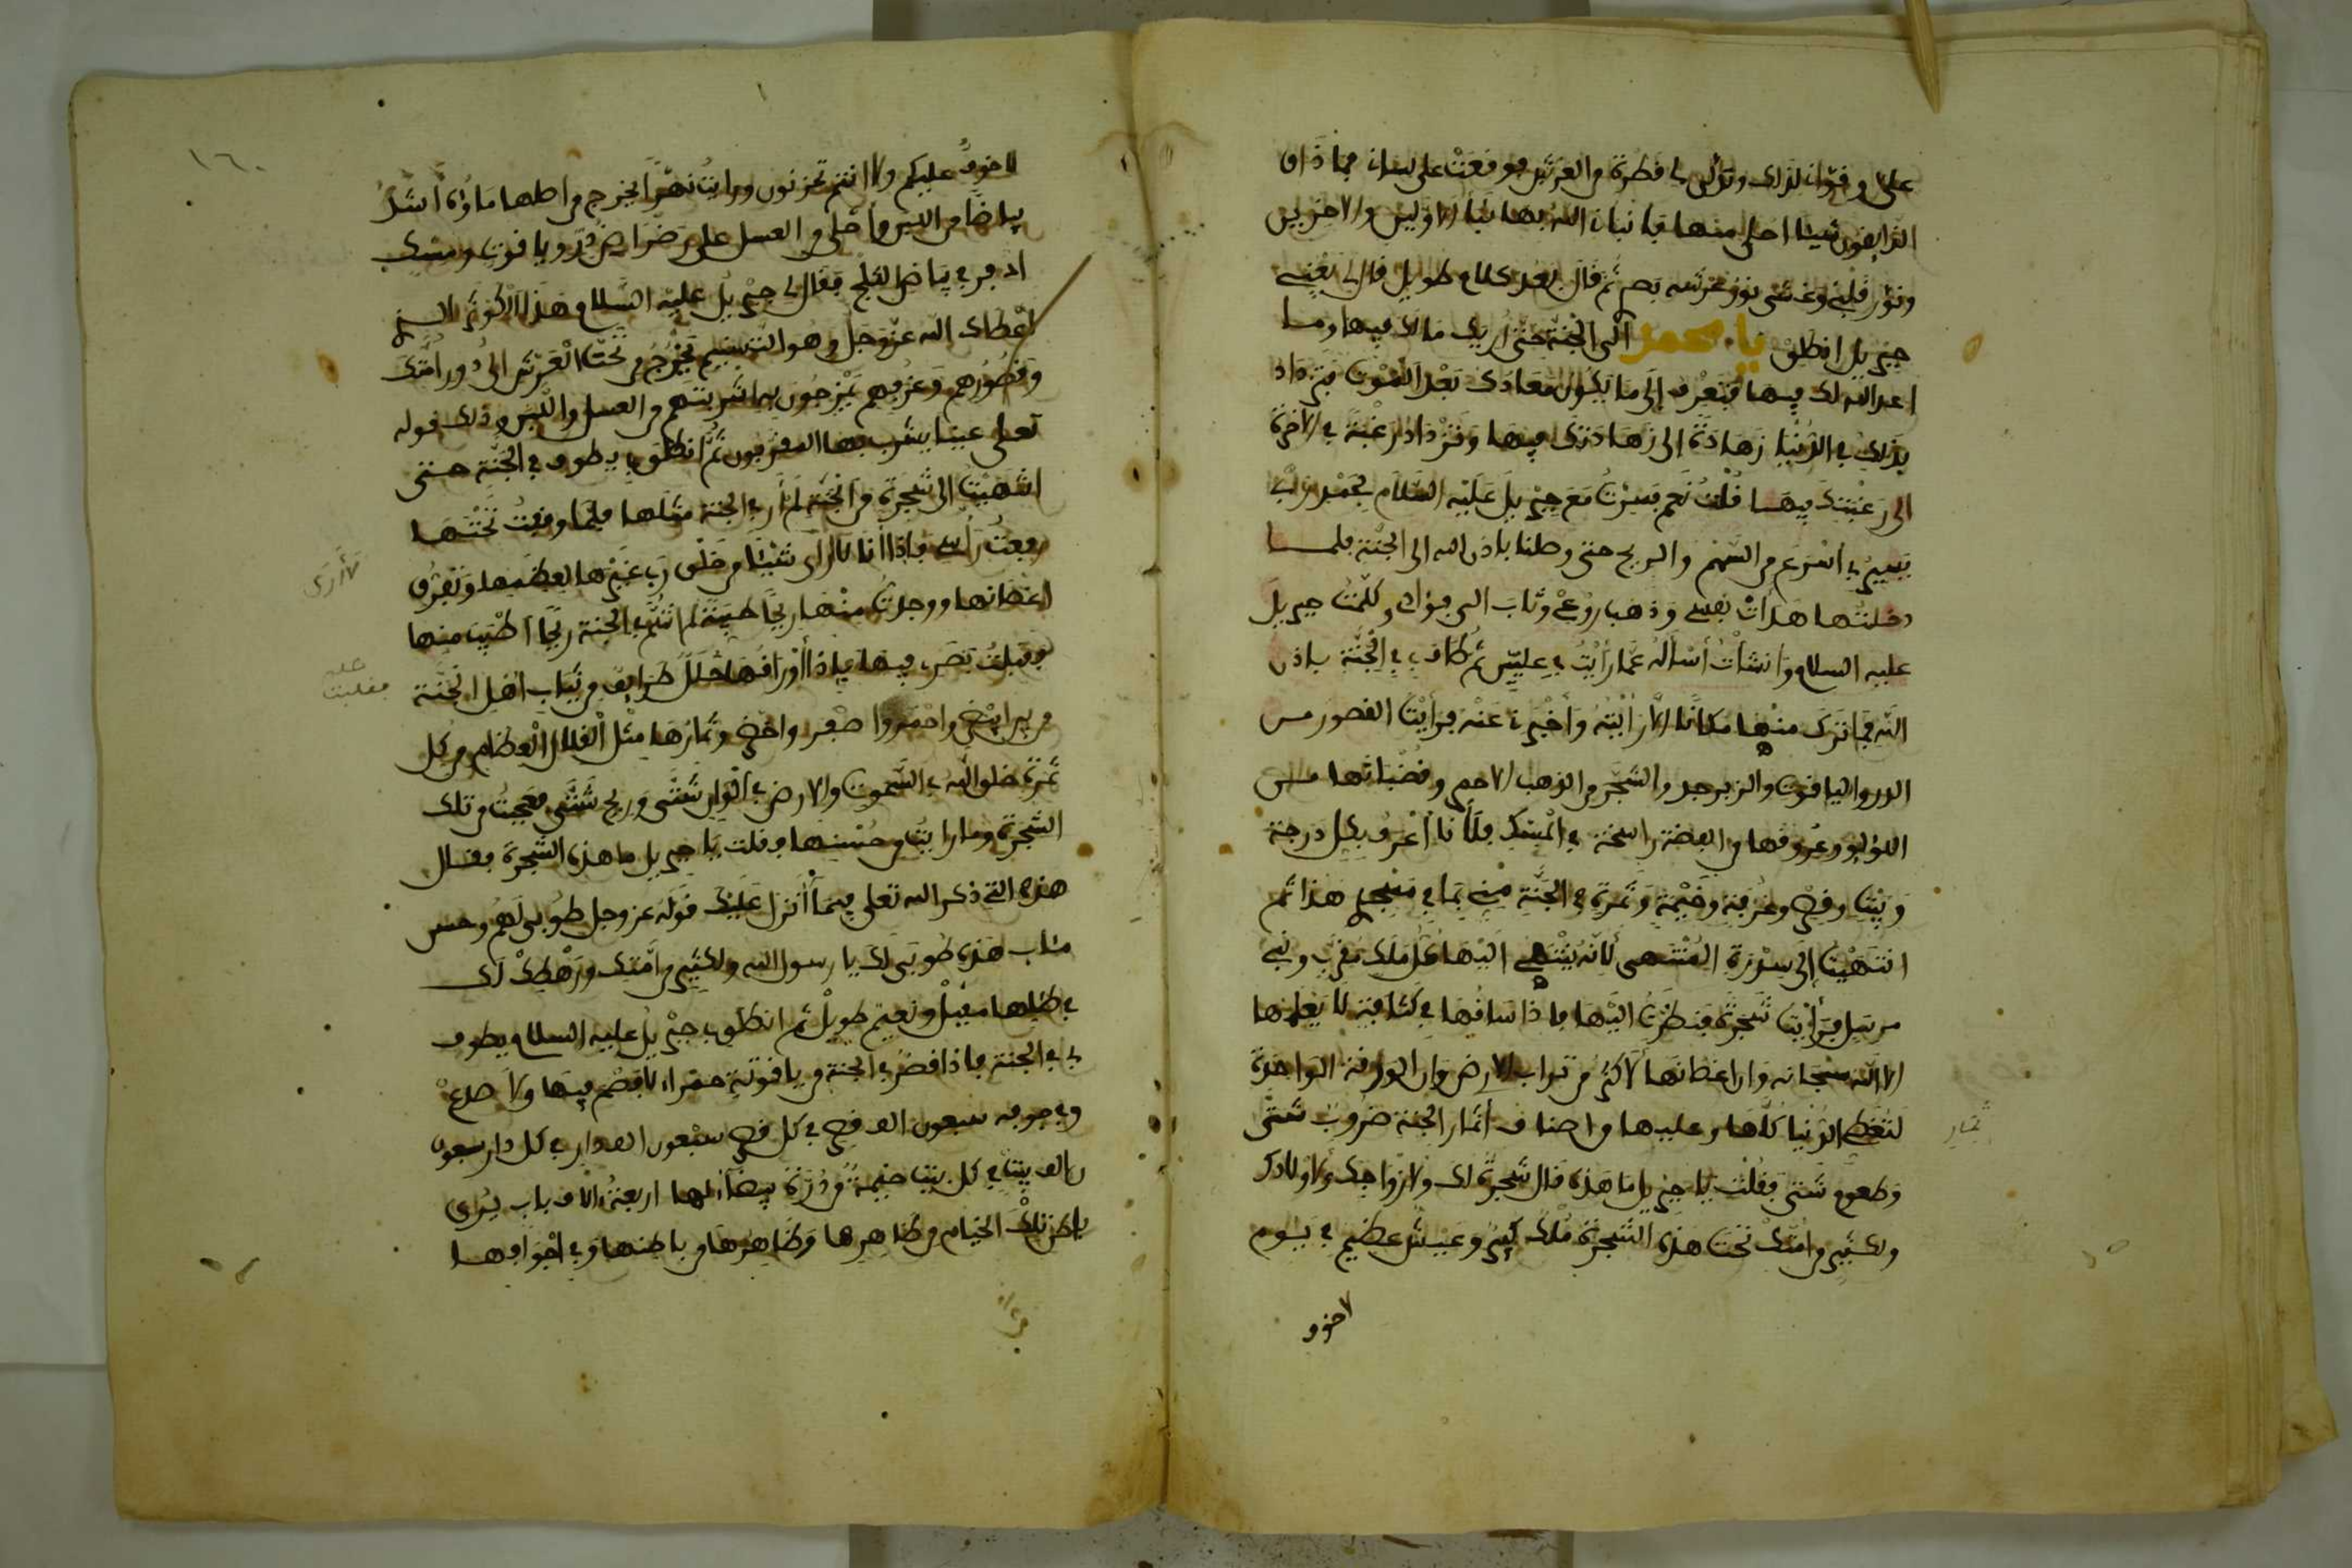 على وقواني لذلك وتدلى لي قطرة من العرش فوقعت على لساني فما ذاق
الذايقون شيئا احلى منها فأنبأني الله بها نبأ الاولين والاخرين
ونور قلبي وغشى نور عرشه بصري ثم قال بعد كلام طويل قال لي
جبريل انطلق يا محمد الى الجنة حتى اريك مالك فيها وما
اعد الله لك فيها فتعرف إلى ما يكون معادك بعد الموت فتزداد
بذلك في الدنيا زهادة إلى زهادتك فيها وتزداد رغبة في الاخرة
الى رغبتك فيها قلت نعم فسرت مع جبريل عليه السلام بحمد ربي
يسير بي اسرع من السهم والريح حتى وصلنا باذن الله الى الجنة فلما
دخلتها هدأت نفسي وذهب روعي وثاب الي فؤادي وكلمت جبريل
عليه السلام وانشأت أسأله عما رأيت في عليين ثم طاف بي في الجنة باذن
الله فما ترك منها مكانا الا رأيته وأخبرني عنه فرأيت القصور من
الدر والياقوت والزبرجد والشجر من الذهب الاحمر وقضبانها من
اللؤلؤ وعروقها من الفضة راسخة في المسك فلأنا أعرف بكل درجة
وبيت وقصر وغرفة وخيمة وثمرة في الجنة مني بما في مسجدي هذا ثم
انتهيت إلى سدرة المنتهى لأنه ينتهي اليها كل ملك مقرب ونبي
مرسل فرأيت شجرة فنظرت اليها فإذا ساقها في كثافة لا يعلمها
الا الله سبحانه وان اغصانها لأكثر من تراب الارض وان الورقة الواحدة
لتغطي الدنيا كلها وعليها من اصناف أثمار الجنة ضروب شتى
وطعوم شتى فقلت يا جبريل ما هذه قال شجرة لك ولازواجك ولاولادك
ولكثير من امتك تحت هذه الشجرة ملك كبير وعيش عظيم في يوم
لا خوف
لا خوف عليكم ولا انتم تحزنون ورايت نهرا يخرج من اصلها ماؤه اشد
بياضا من اللبن وأحلى من العسل على رضراض در وياقوت ومسك
اذفر في بياض الثلج فقال لي جبريل عليه السلام هذا الكوثر الذي
اعطاك الله عز وجل وهو التسنيم يخرج من تحت العرش الى دور امتك
وقصورهم وغرفهم يمزجون بها اشربتهم من العسل واللبن وذلك قوله
تعلى عينا يشرب بها المقربون ثم انطلق بي يطوف في الجنة حتى
انتهيت الى شجرة من الجنة لم أر في الجنة مثلها فلما وقفت تحتها
رفعت رأسي فإذا انا لا ارى شيئا من خلق ربي غيرها لعظمها وتفرق
اغصانها ووجدت منها ريحا طيبة لم اشم في الجنة ريحا اطيب منها
فقبلت بصري فيها فإذا أوراقها حلل طرايف من ثياب اهل الجنة
من بين ابيض واحمر واصفر واخضر وثمارها مثل القلال العظام من كل
ثمرة خلق الله في السموت والارض في الوان شتى وريح شتى فعجبت من تلك
الشجرة وما رايت من حسنها فقلت يا جبريل ما هذه الشجرة فقال
هذه التي ذكر الله تعلى فيما أنزل عليك قوله عز وجل طوبى لهم وحسن
مئاب هذه طوبى لك يا رسول الله ولكثير من امتك ورهطك لك
في ظلها مقيل ونعيم طويل ثم انطلق بي جبريل عليه السلام يطوف
لي في الجنة فإذا قصر في الجنة من ياقوتة حمراء لا فصم فيها ولا صدع
وفي جوفه سبعون الف قصر في كل قصر سبعون الف دار في كل دار سبعون
الف بيت في كل بيت خيمة من درة بيضاء لها اربعة آلاف باب يرى
باطن تلك الخيام من ظاهرها وظاهرها من باطنها وفي اجوافها
لا أرى
فقلبت
ثمار
١٦٠